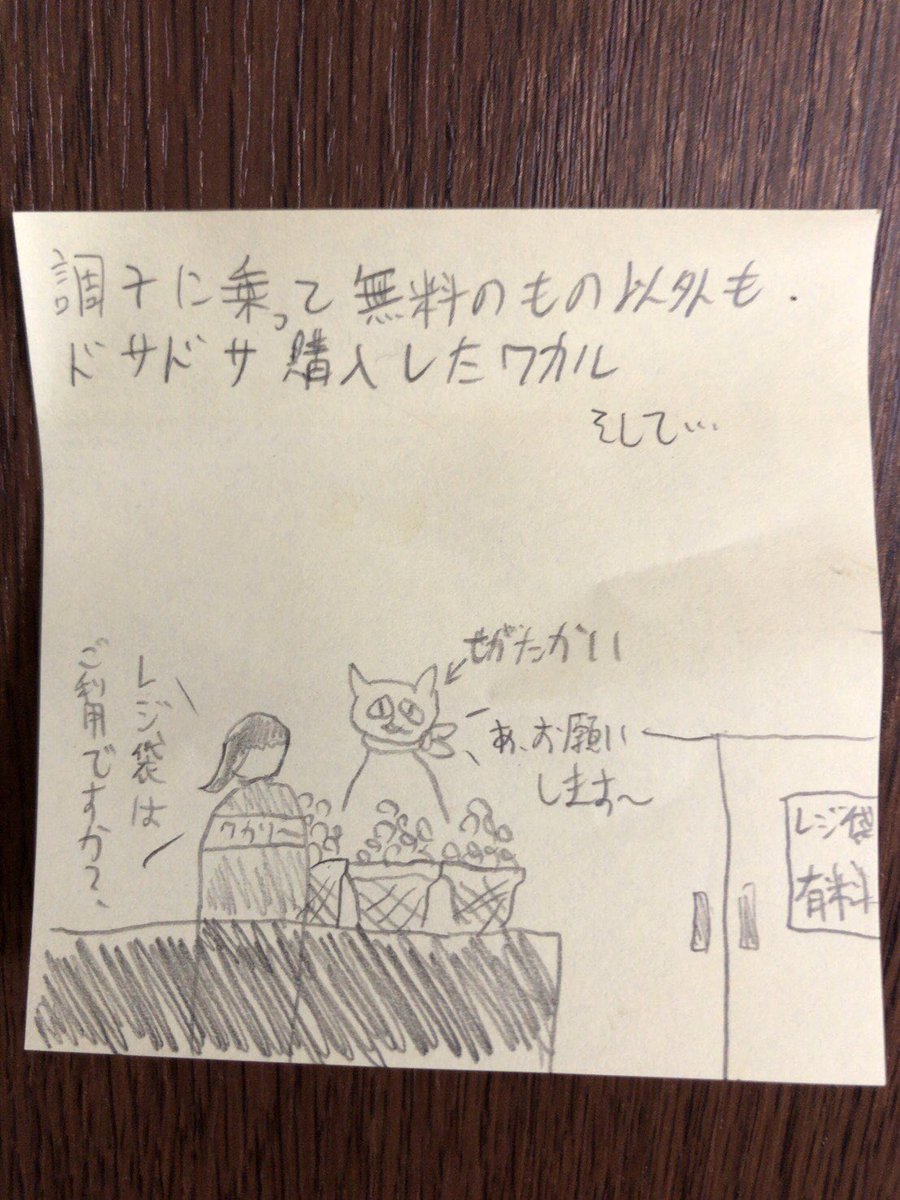 調子に乗って無料のもの以外も
ドサドサ購入したワカル
そして…
せがたかい
レジ袋は
ご利用ですか?
あ、お願い
します〜
ワカリー
レジ袋
有料